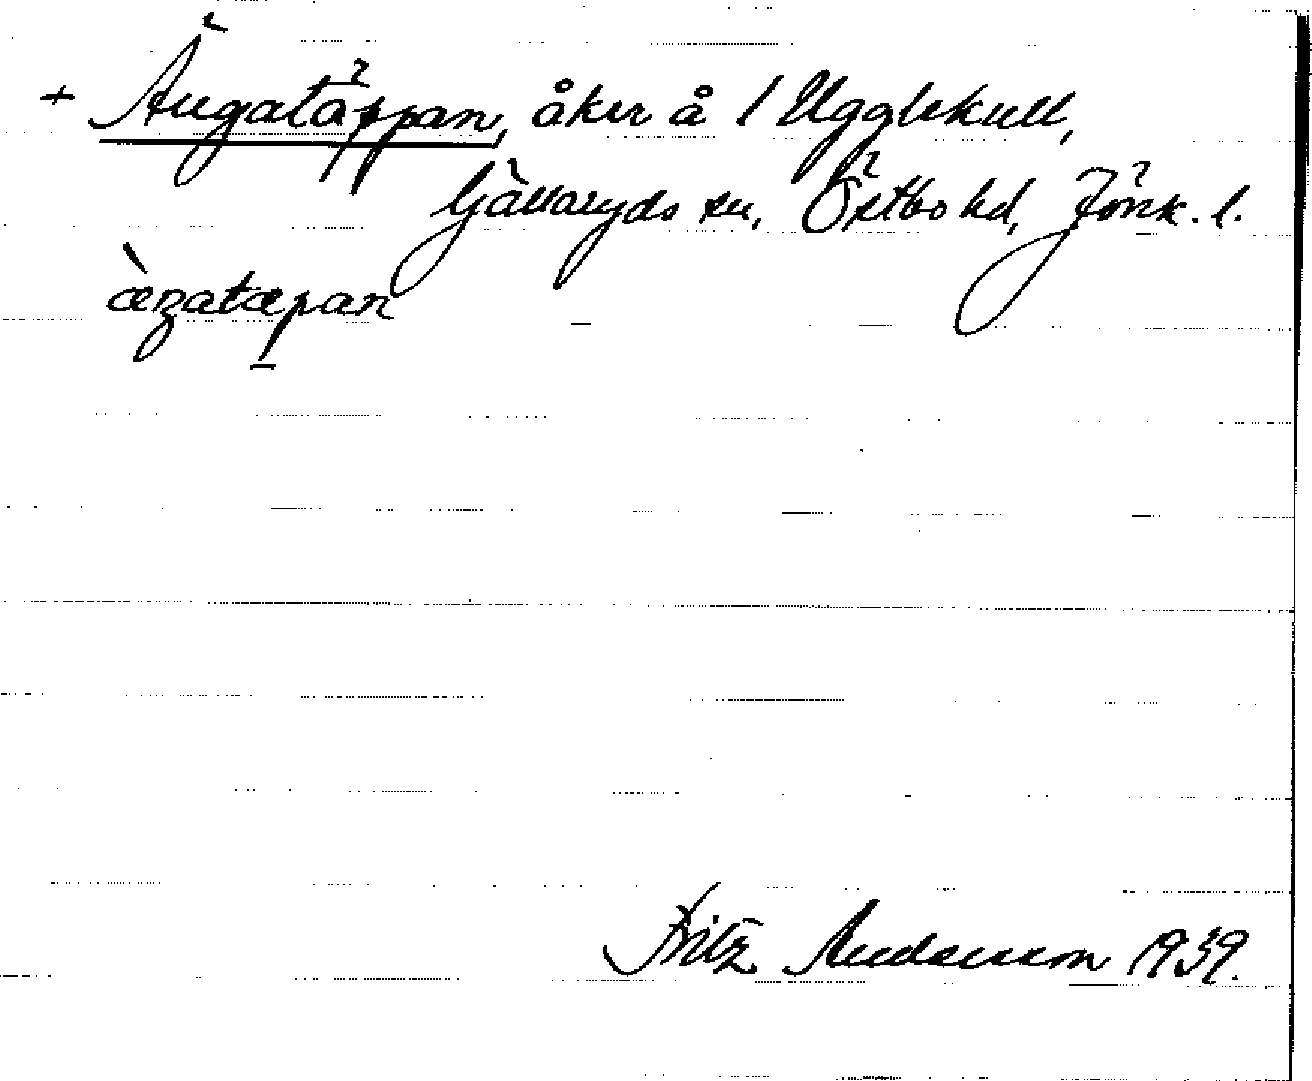 + Ängatäppan, åker å 1 Ugglekull,
Gällaryds sn, Östbo hd, Jönk. l.
ӕ̀ŋatӕpan
Fritz Andersson 1939.